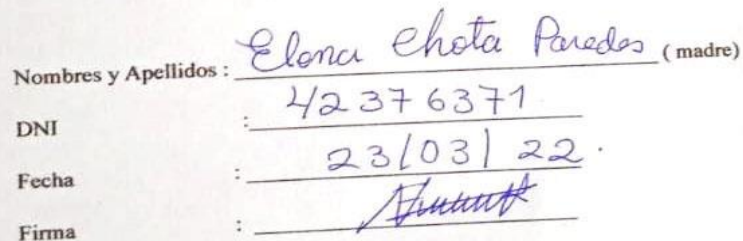 Nombres y Apellidos : Elena Chota Paredes ( madre)
DNI : 42376371
Fecha : 23/03/22.
Firma :